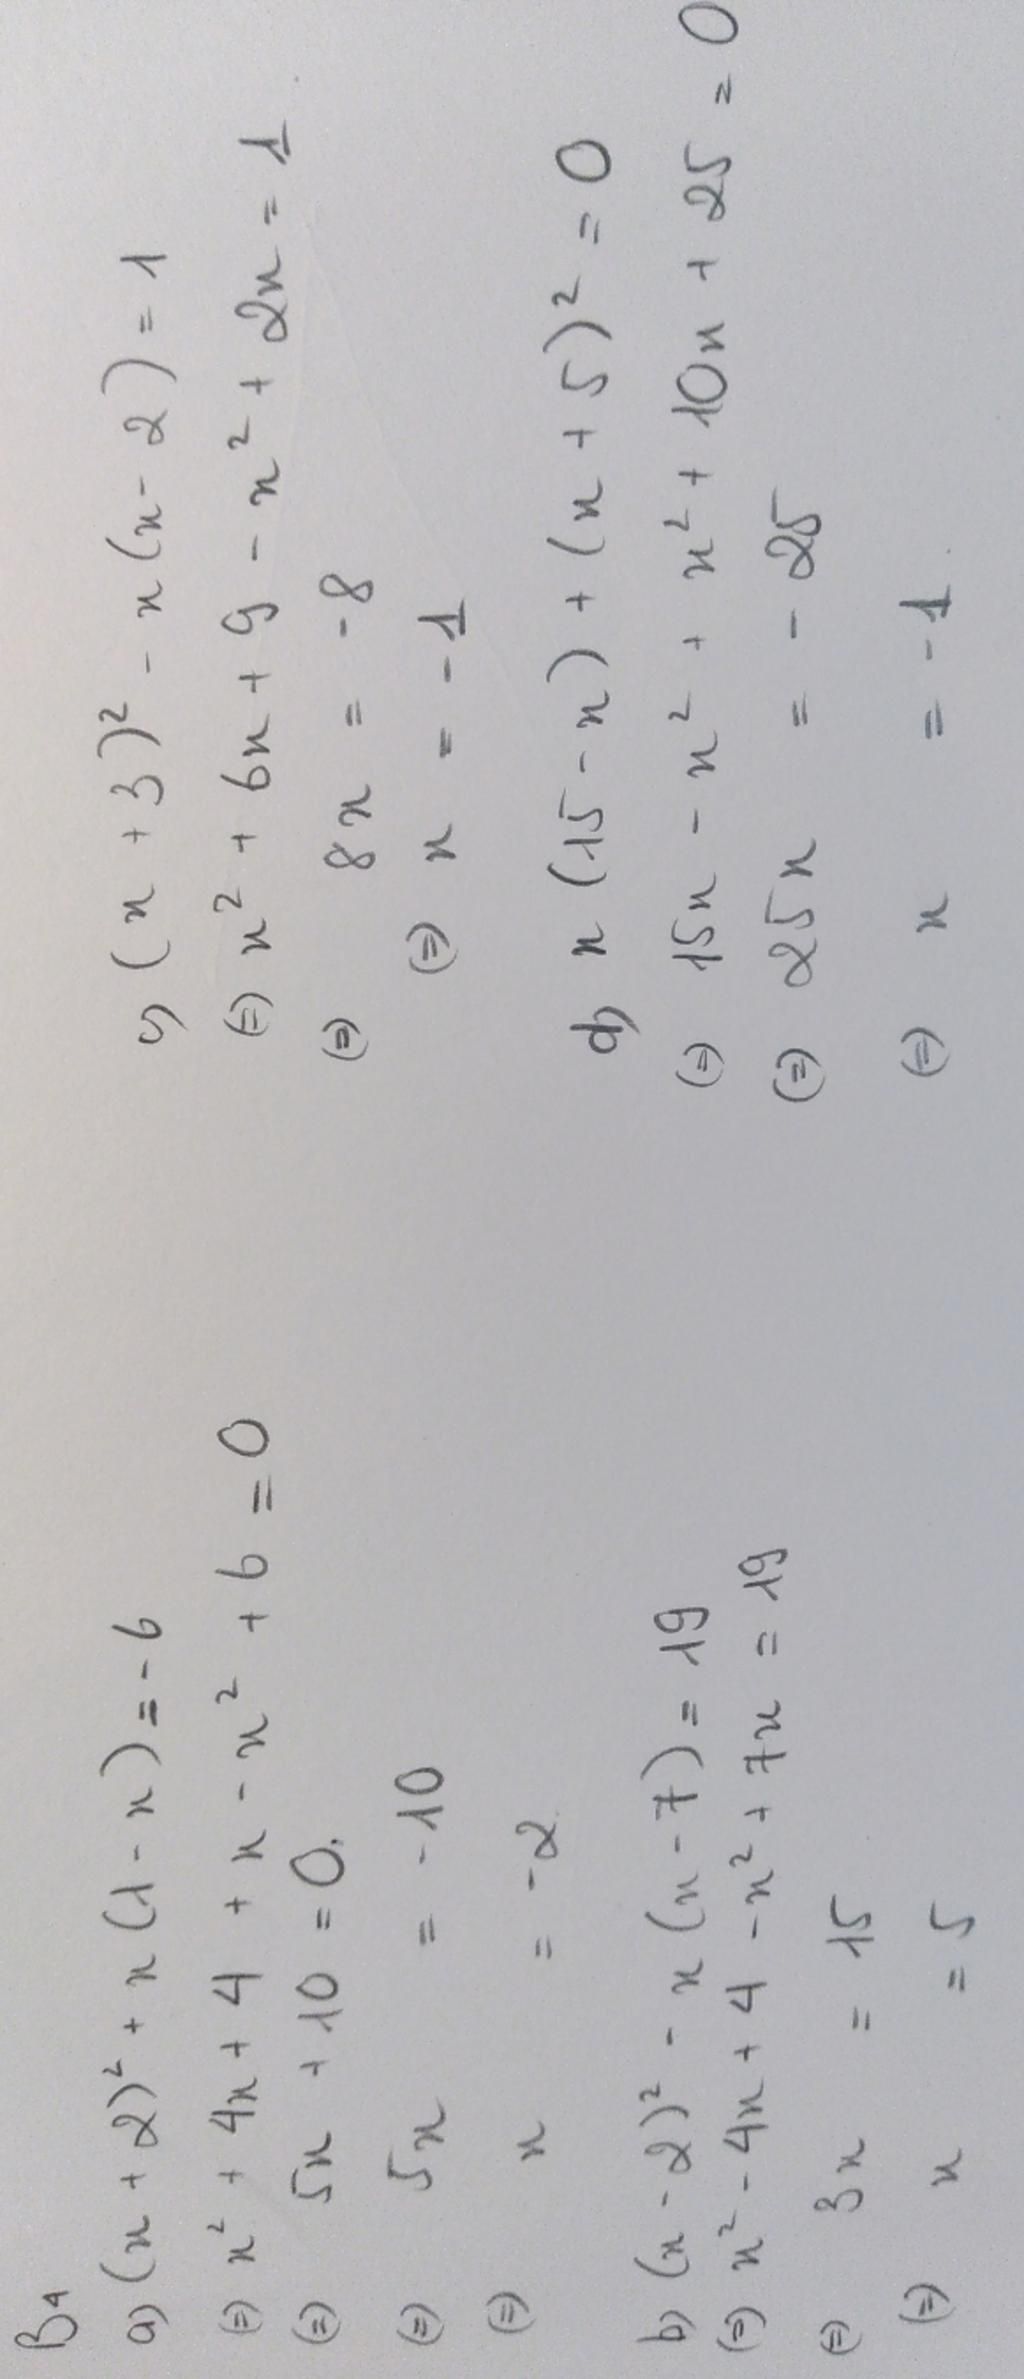 B4
a) (x + 2)² + x (1 - x) = - 6
(=) x² + 4x + 4 + x - x² + 6 = 0
(=) 5x + 10 = 0.
(=) 5x = - 10
(=) x = - 2
b) (x - 2)² - x (x - 7) = 19
(=) x² - 4x + 4 - x² + 7x = 19
(=) 3x = 15
(=) x = 5
c) (x + 3)² - x (x - 2) = 1
(=) x² + 6x + 9 - x² + 2x = 1
(=) 8x = - 8
(=) x = - 1
d) x (15 - x) + (x + 5)² = 0
(=) 15x - x² + x² + 10x + 25 = 0
(=) 25x = - 25
(=) x = - 1.